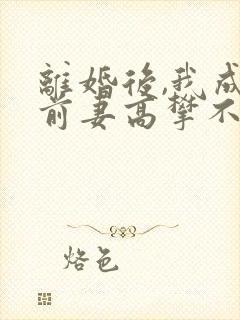 離婚後,我成
前妻高攀不
烙色